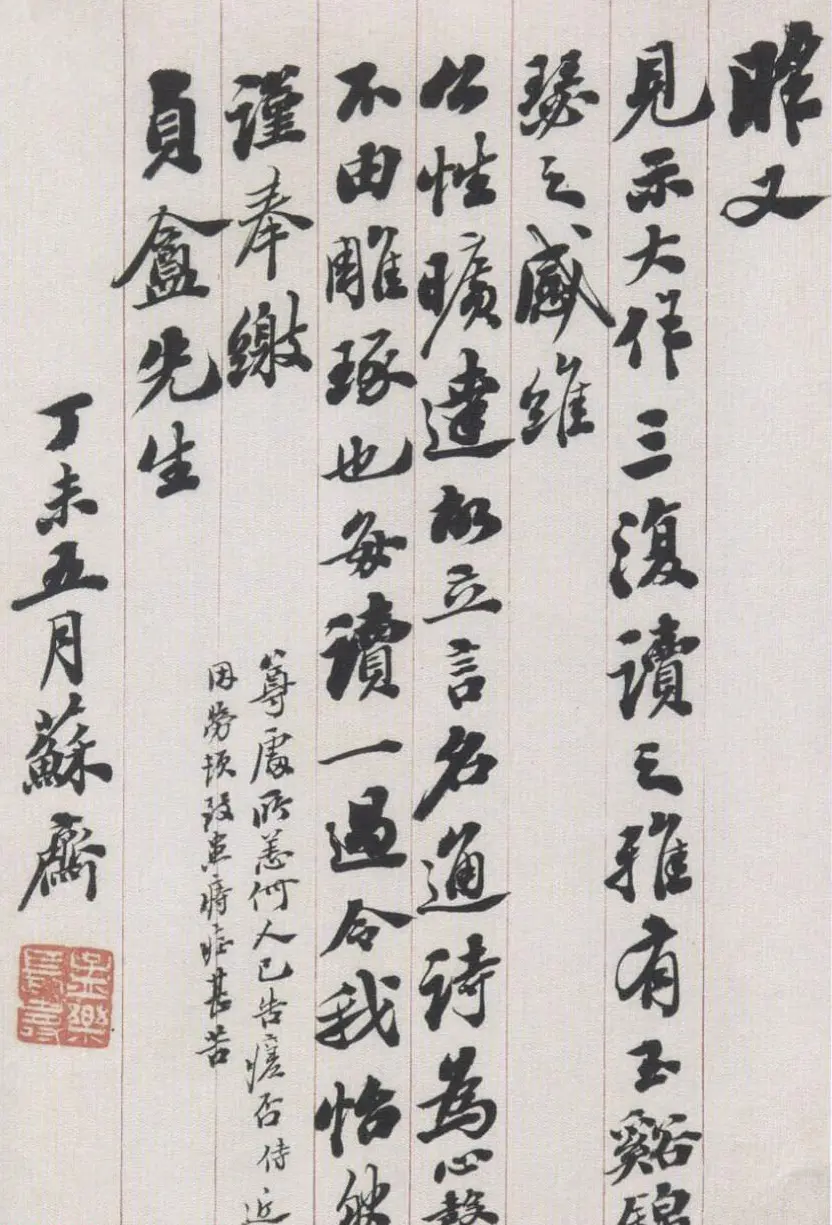 昨又
見示大作三復讀之雅有玉谿錦
瑟之感維
公性曠達故立言名通詩為心聲
不由雕琢也每讀一過令我怡然
謹奉繳
貞盦先生
尊處所恙何人已告瘥否侍近
因勞頓致患痔症甚苦
丁未五月蘇齋
長樂